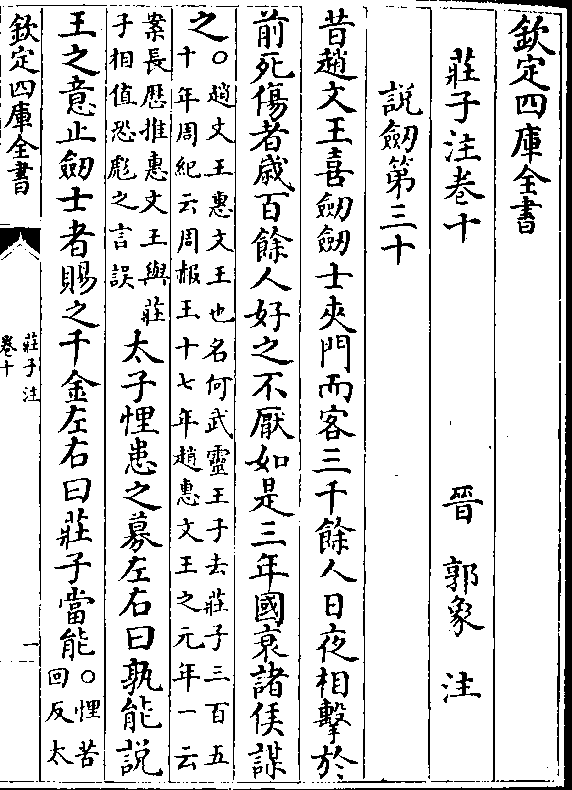 欽定四庫全書
莊子注卷十 晉 郭象 注
說劒第三十
昔趙文王喜劒劒士夾門而客三千餘人日夜相擊於
前死傷者歲百餘人好之不厭如是三年國衰諸侯謀
之○趙文王惠文王也名何武靈王子去莊子三百五
十年周紀云周赧王十七年趙惠文王之元年一云
案長歷推惠文王與莊
子相值恐彪之言誤
太子悝患之募左右曰孰能說
王之意止劒士者賜之千金左右曰莊子當能○悝苦
回反太
欽定四庫全書
莊子注
卷十
一